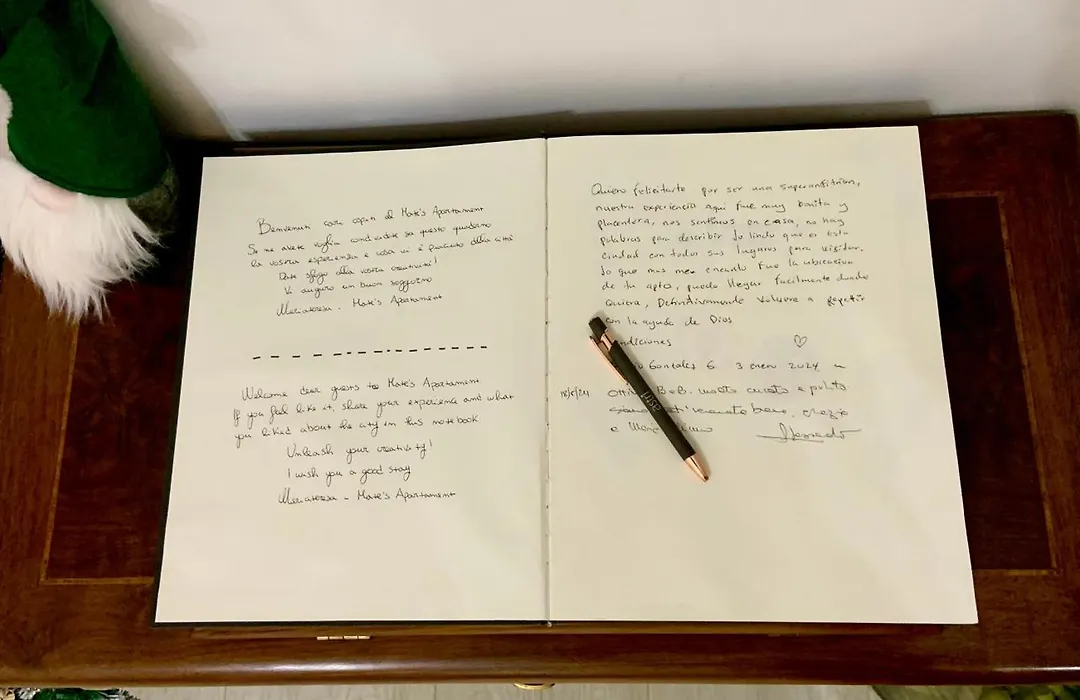 Benvenuti cari ospiti al Mate's Apartament
Se ne avete voglia condividete su questo quaderno
la vostra esperienza e cosa vi è piaciuto della città
Date sfogo alla vostra creatività!
Vi auguro un buon soggiorno
Mariateresa - Mate's Apartament
Welcome dear guests to Mate's Apartament
If you feel like it, share your experience and what
you liked about the city in this notebook
Unleash your creativity!
I wish you a good stay
Mariateresa - Mate's Apartament
Quiero felicitarte por ser una superanfitrion,
nuestra experiencia aqui fue muy bonita y
placentera, nos sentimos en casa, no hay
palabras para describir lo lindo que es esta
ciudad con todos sus lugares para visitar.
lo que mas me encanto fue la ubicacion
de tu apto, puede llegar facilmente donde
quiera, Definitivamente volvere a repetir
con la ayuda de Dios
ndiciones ♡
Gonzales G. 3 enero 2024
18/5/24 B&B. molto curato e pulito
bene. grazie
e